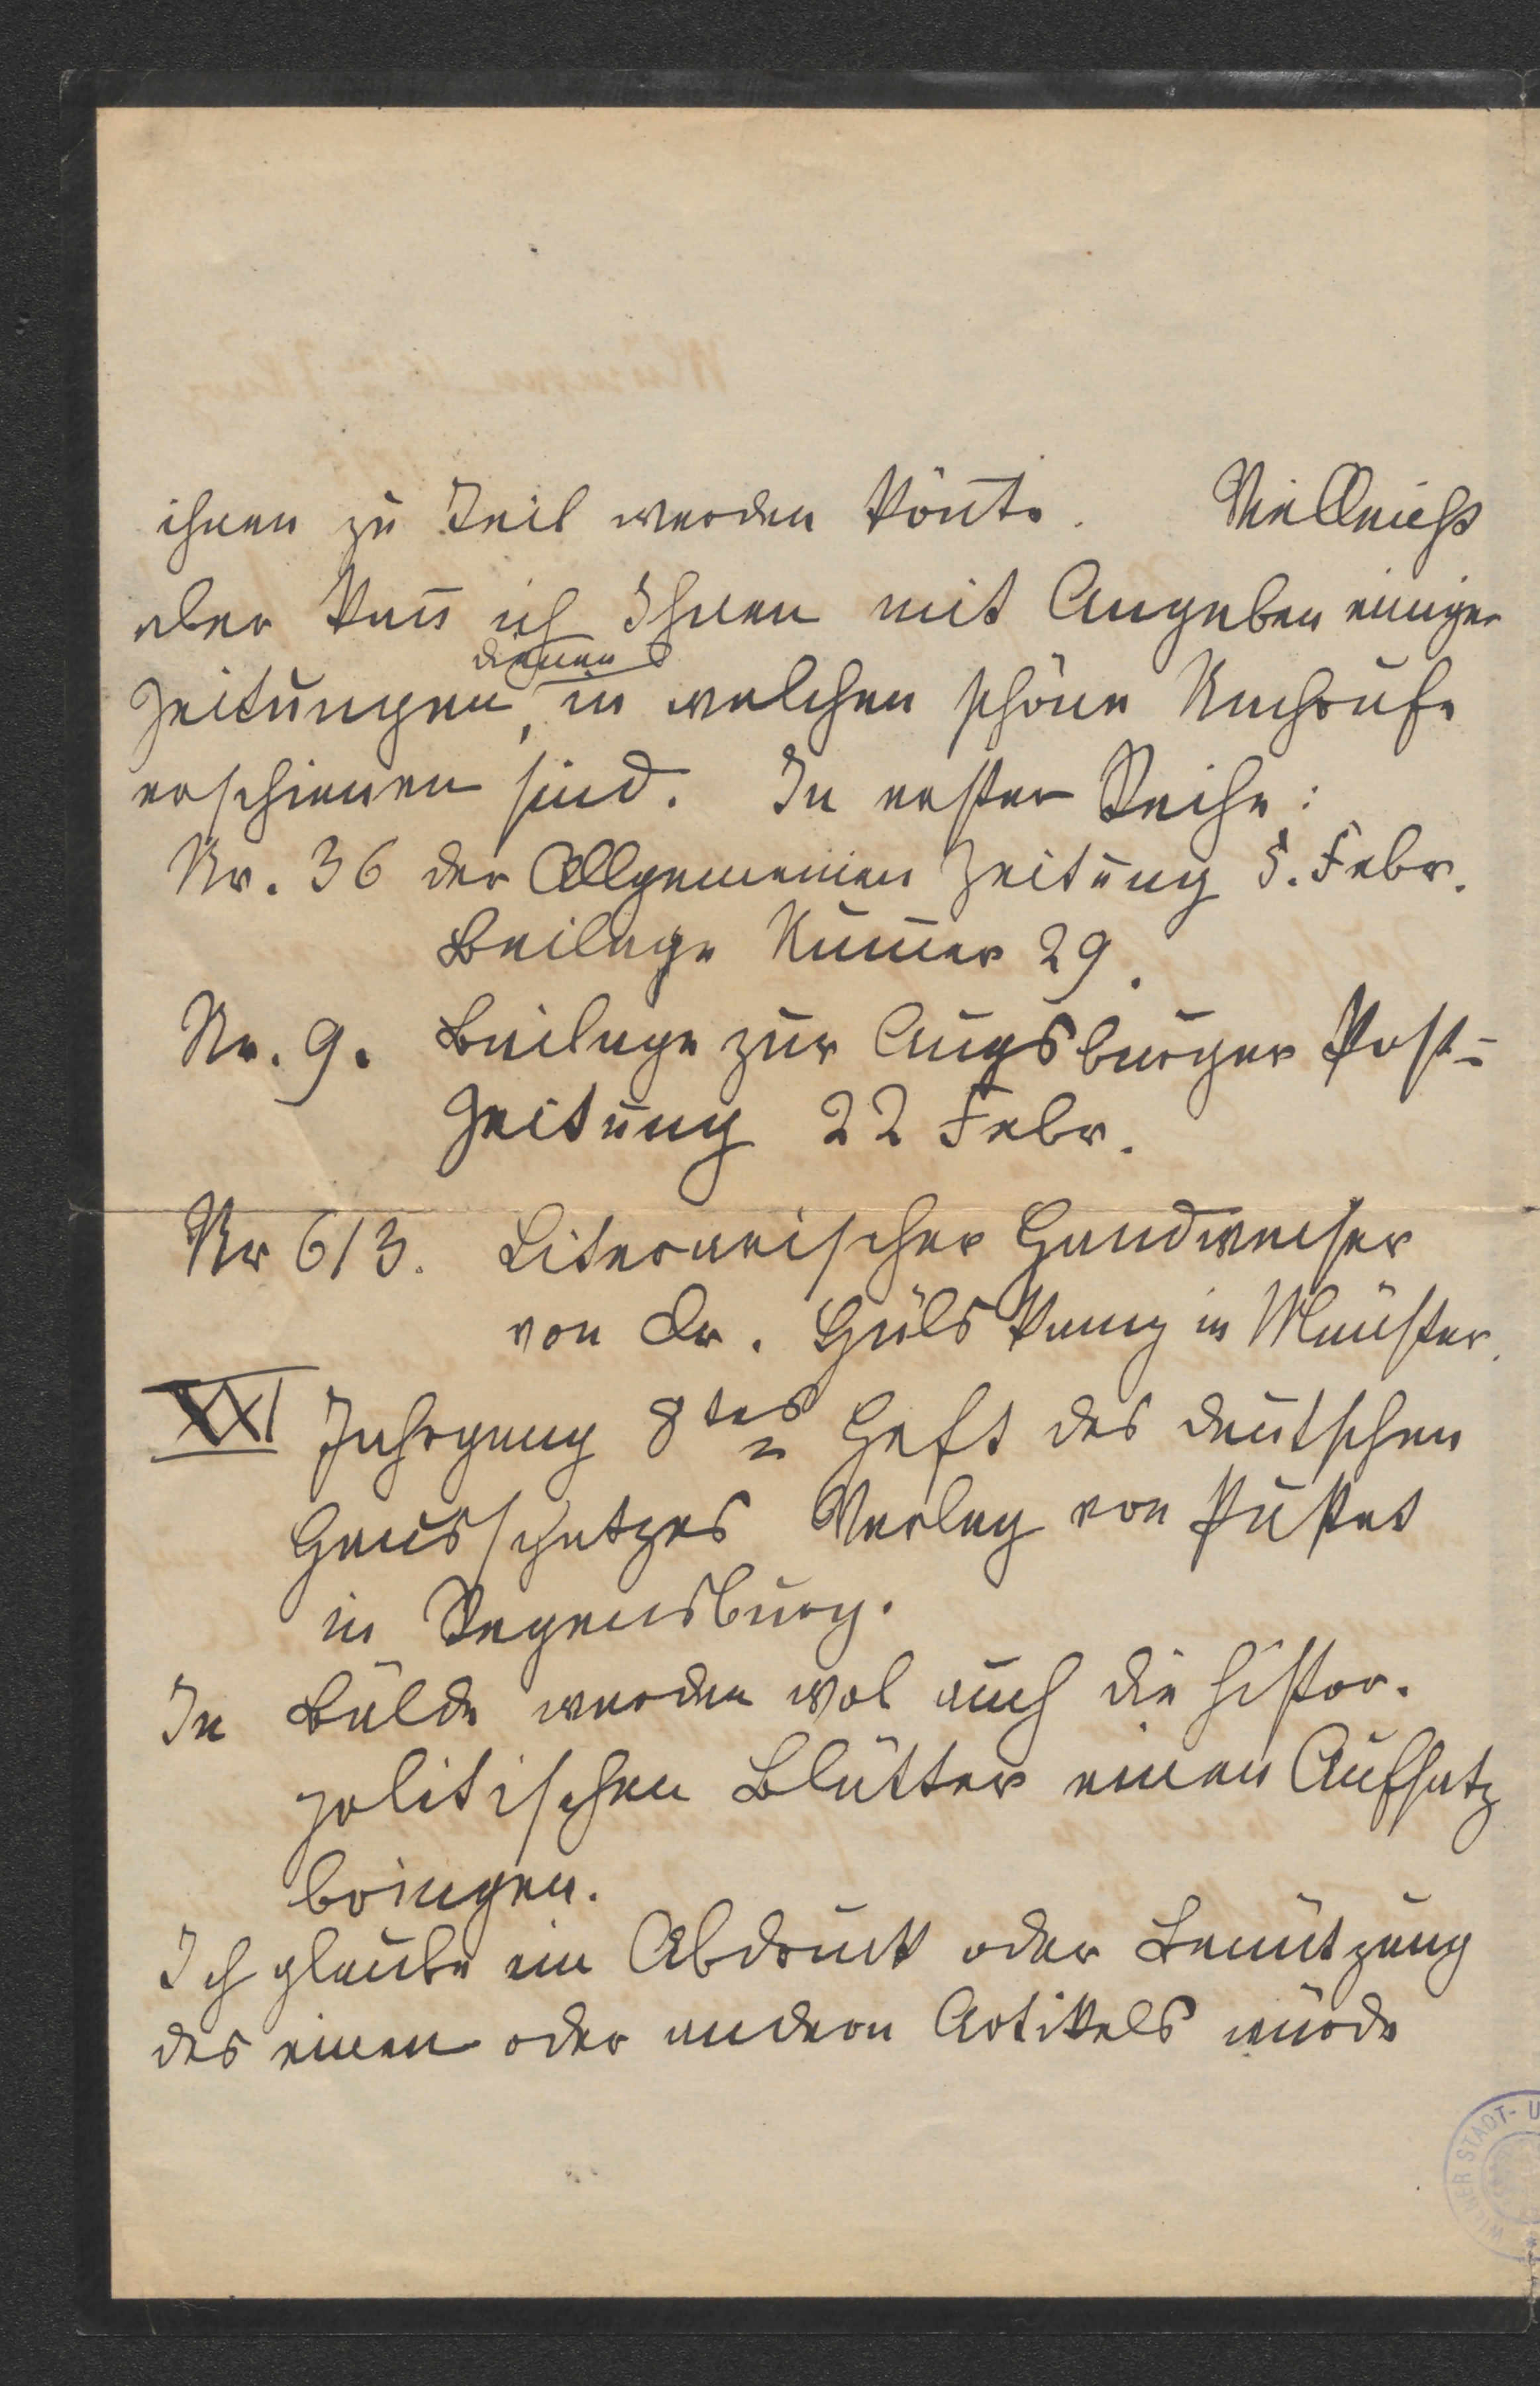 ihnen zu Teil werden könte. Vielleicht
aber kan̄ ich Ihnen mit Angeben einiger
dienen
Zeitungen, in welchen schöne Nachrufe
erschienen sind. In erster Reihe:
Nr. 36 der Allgemeinen Zeitung 5. Febr.
Beilage Num̄er 29.
Nr. 9. Beilage zur Augsburger Post-
Zeitung 22 Febr.
Nr 613. Literarischer Handweiser
von Dr. Hülskamp in Münster.
XXI Jahrgang 8tes Heft des deutschen
Hausschatzes Verlag von Pustet
in Regensburg.
In Bälde werden wol auch die histor.
politischen Blätter einen Aufsatz
bringen.
Ich glaube ein Abdruck oder Benützung
des einen oder andern Artikels würde
WIENER STADT- U